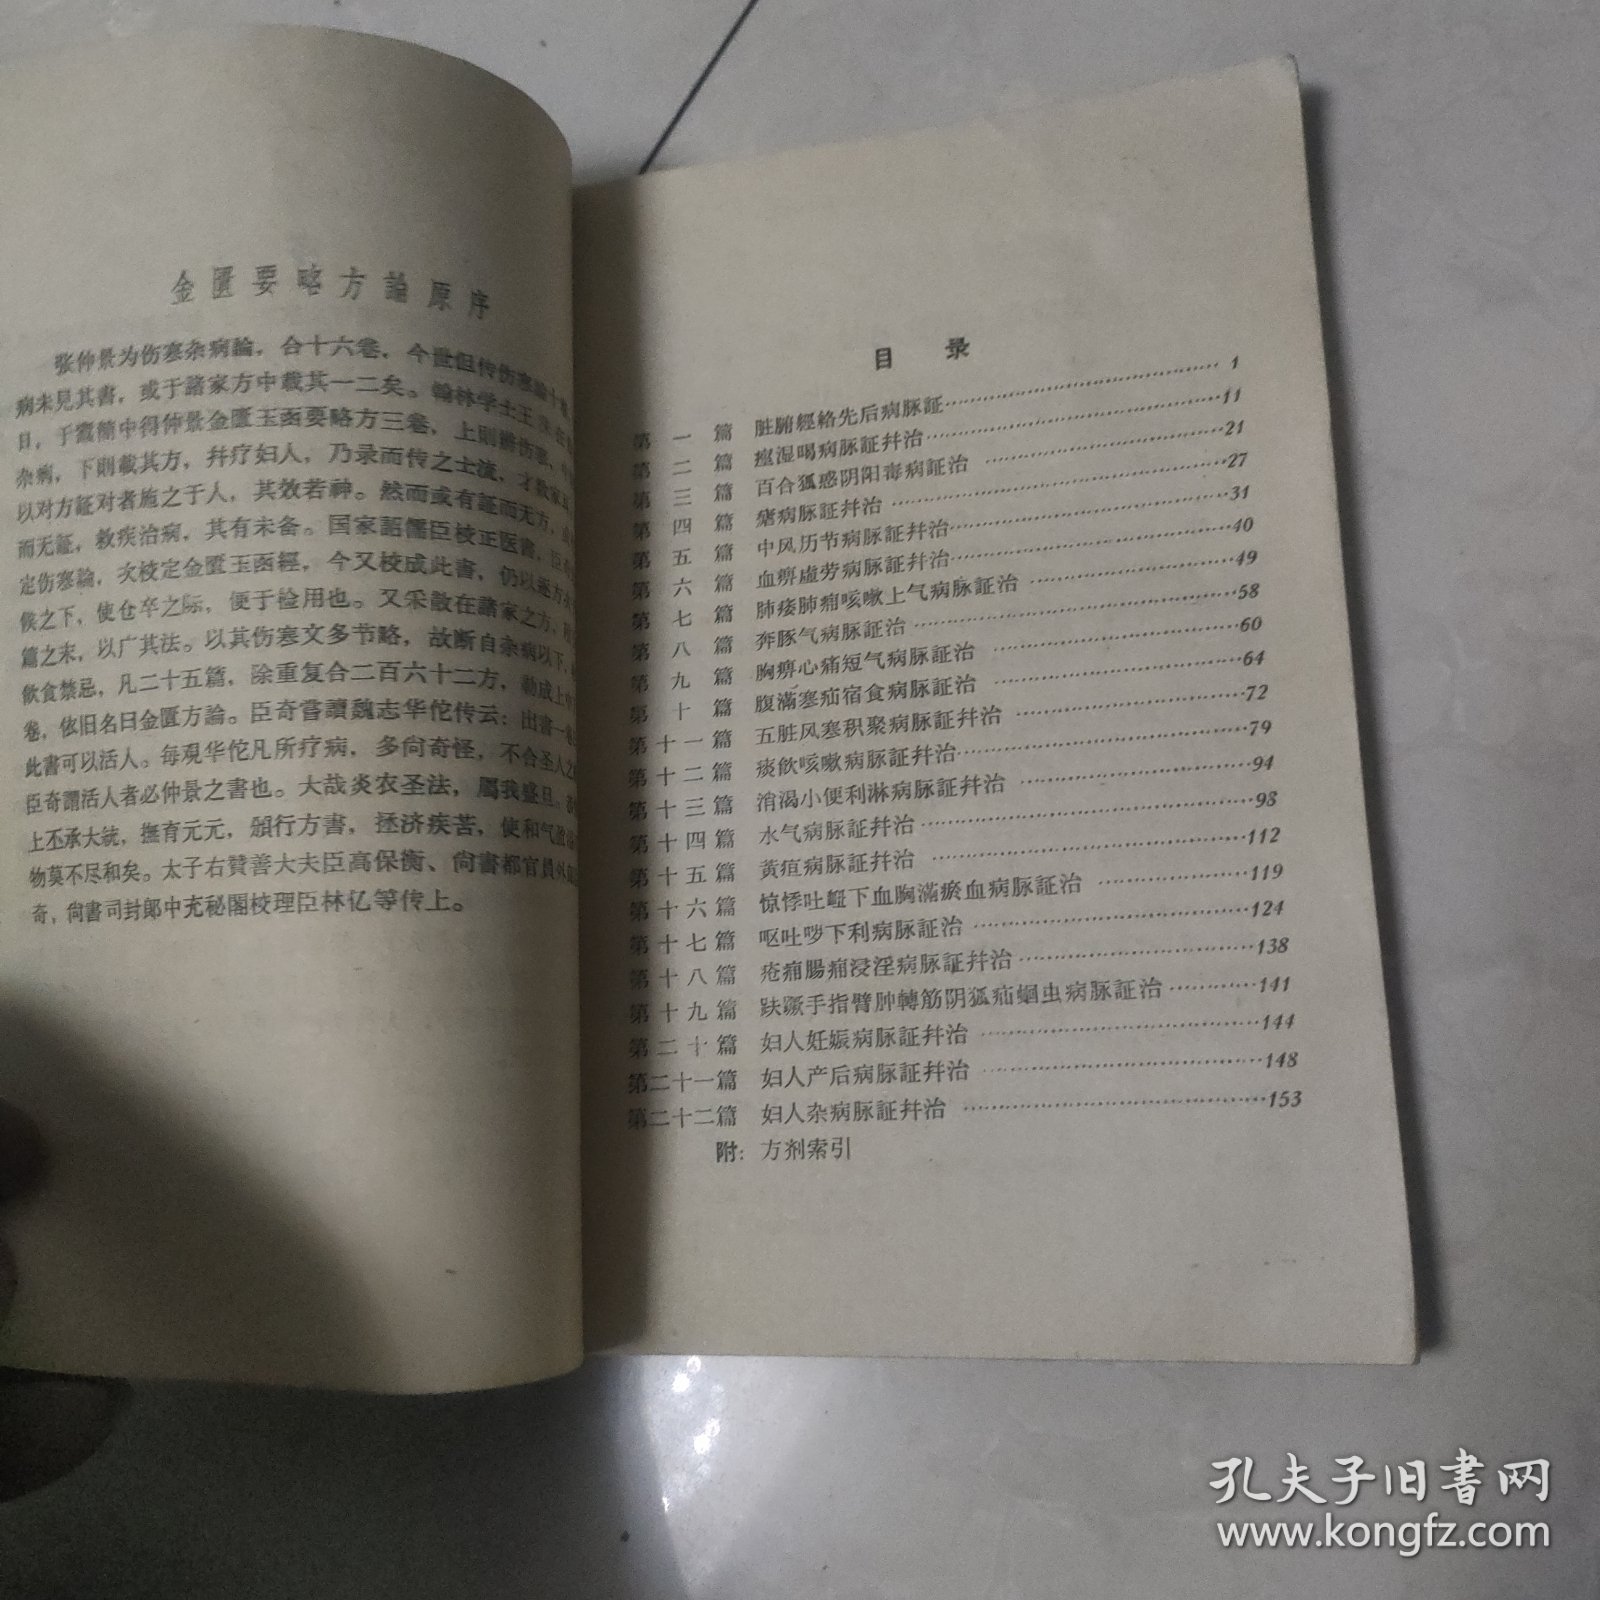 金匱要略方論原序
张仲景为伤寒杂病論，合十六卷，今世但传伤寒論十
病未見其書，或于諸家方中載其一二矣。翰林学士王
日，于蠹簡中得仲景金匱玉函要略方三卷，上則辨伤寒，中
杂病，下則載其方，幷疗妇人，乃录而传之士流，才数家
以对方証对者施之于人，其效若神。然而或有証而无方，或
而无証，救疾治病，其有未备。国家詔儒臣校正医書，臣奇
定伤寒論，次校定金匱玉函經，今又校成此書，仍以逐方次
候之下，使仓卒之际，便于检用也。又采散在諸家之方，
篇之末，以广其法。以其伤寒文多节略，故断自杂病以下，
飲食禁忌，凡二十五篇，除重复合二百六十二方，勒成上中
卷，依旧名曰金匱方論。臣奇嘗讀魏志华佗传云：出書一卷
此書可以活人。每观华佗凡所疗病，多尙奇怪，不合圣人之
臣奇謂活人者必仲景之書也。大哉炎农圣法，屬我盛旦。
上丕承大統，撫育元元，頒行方書，拯济疾苦，使和气盈
物莫不尽和矣。太子右贊善大夫臣高保衡、尙書都官員外
奇，尙書司封郎中充秘閣校理臣林亿等传上。
目　录
第一篇　脏腑經絡先后病脉証……1
第二篇　痙湿暍病脉証幷治……11
第三篇　百合狐惑阴阳毒病証治……21
第四篇　瘧病脉証幷治……27
第五篇　中风历节病脉証幷治……31
第六篇　血痹虛劳病脉証幷治……40
第七篇　肺痿肺痈咳嗽上气病脉証治……49
第八篇　奔豚气病脉証治……58
第九篇　胸痹心痛短气病脉証治……60
第十篇　腹滿寒疝宿食病脉証治……64
第十一篇　五脏风寒积聚病脉証幷治……72
第十二篇　痰飲咳嗽病脉証幷治……79
第十三篇　消渴小便利淋病脉証幷治……94
第十四篇　水气病脉証幷治……98
第十五篇　黃疸病脉証幷治……112
第十六篇　惊悸吐衄下血胸滿瘀血病脉証治……119
第十七篇　呕吐哕下利病脉証治……124
第十八篇　疮痈腸痈浸淫病脉証幷治……138
第十九篇　趺蹶手指臂肿轉筋阴狐疝蛔虫病脉証治……141
第二十篇　妇人妊娠病脉証幷治……144
第二十一篇　妇人产后病脉証幷治……148
第二十二篇　妇人杂病脉証幷治……153
附：方剂索引
孔夫子旧书网
www.kongfz.com